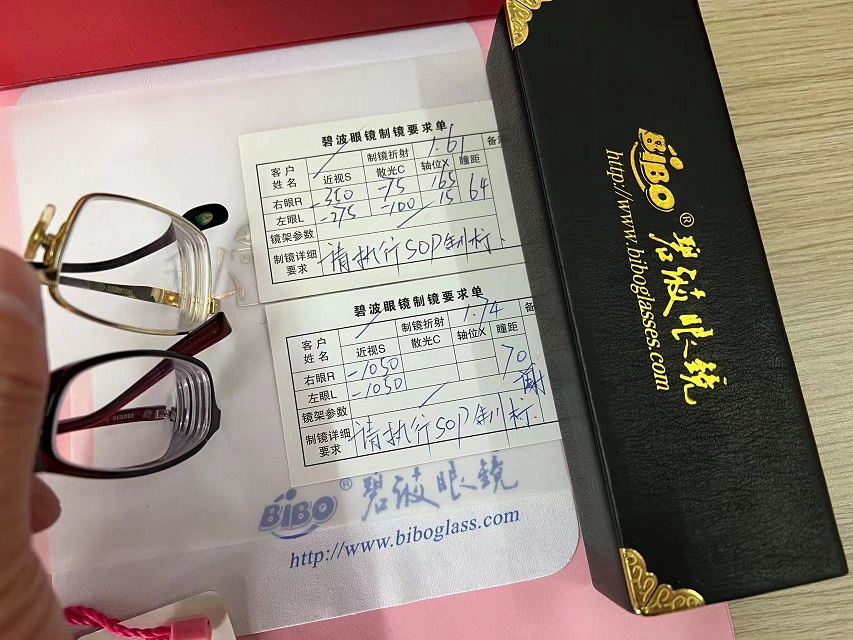 碧波眼镜制镜要求单
客户姓名 近视S 制镜折射 1.61 备
散光C 轴位X 瞳距
右眼R -350 -75 165 64
左眼L -275 -100 15
镜架参数
制镜详细要求 请执行SOP制标、
碧波眼镜制镜要求单
客户姓名 近视S 制镜折射 1.74 备
散光C 轴位X 瞳距
右眼R -1050 70
左眼L -1050
镜架参数
制镜详细要求 请执行SOP制标.
BiBO® 碧波眼镜
http://www.biboglass.com
BiBO® 碧波眼镜
http://www.biboglasses.com